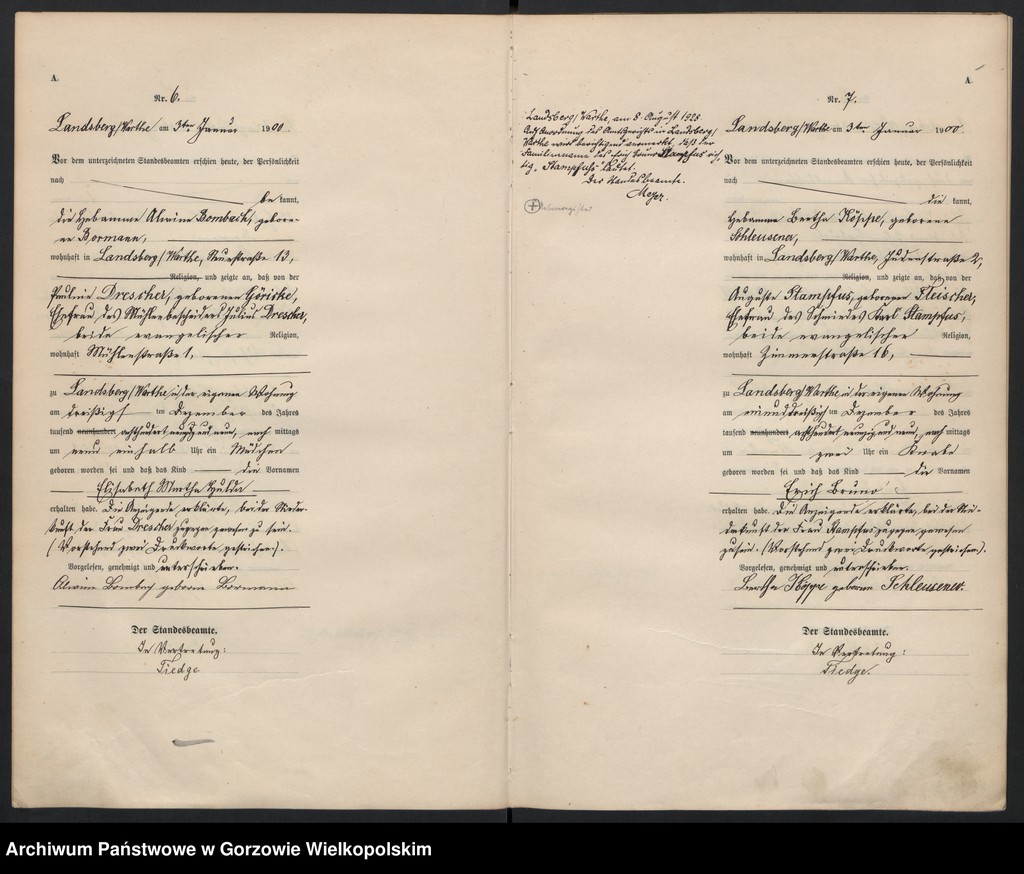 A.
Nr. 6.
Landsberg/Warthe am 3ten Januar 1900.
Vor dem unterzeichneten Standesbeamten erschien heute, der Persönlichkeit
nach
be kannt,
die Hebamme Alwine Bombach, gebore-
ne Bormann,
wohnhaft in Landsberg/Warthe, 13,
Religion, und zeigte an, daß von der
Pauline Drescher, geborenen Göricke,
Ehefrau des Mühlenbescheiders Julius Drescher,
beide evangelischer Religion,
wohnhaft Mühlenstraße 1,
zu Landsberg/Warthe in der eigenen Wohnung
am dreißigsten Dezember des Jahres
tausend neunhundert achthundert neunzig und neun, nach mittags
um neun einhalb Uhr ein Mädchen
geboren worden sei und daß das Kind die Vornamen
Elisabeth Martha Hulda
erhalten habe. Die Anzeigende erklärte, bei der Nieder-
kunft der Frau Drescher zugegen gewesen zu sein.
(Vorstehend zwei Druckworte gestrichen).
Vorgelesen, genehmigt und unterschrieben.
Alwine Bombach geborne Bormann
Der Standesbeamte.
In Vertretung:
Tiedge
Landsberg/Warthe, am 8. August 1928.
Auf Anordnung des Amtsgerichts in Landsberg/
Warthe wird berichtigend vermerkt, daß der
Familienname des Erich Bruno Stampfus rich-
tig "Stampfuß" lautet.
Der Standesbeamte.
Meyer.
A
Nr. 7.
Landsberg/Warthe am 3ten Januar 1900.
Vor dem unterzeichneten Standesbeamten erschien heute, der Persönlichkeit
nach
die kannt,
Hebamme Bertha Köppe, geborene
Schleusener,
wohnhaft in Landsberg/Warthe, Judenstraße 2,
Religion, und zeigte an, daß von der
Auguste Stampfus, geborenen Fleischer,
Ehefrau des Schmiedes Karl Stampfus,
beide evangelischer Religion,
wohnhaft Zimmerstraße 16,
zu Landsberg/Warthe in der eigenen Wohnung
am einunddreißigsten Dezember des Jahres
tausend neunhundert achthundert neunzig und neun, nach mittags
um zwei Uhr ein Knabe
geboren worden sei und daß das Kind die Vornamen
Erich Bruno
erhalten habe. Die Anzeigende erklärte, bei der Nie-
derkunft der Frau Stampfus zugegen gewesen
zu sein. (Vorstehend zwei Druckworte gestrichen).
Vorgelesen, genehmigt und unterschrieben.
Bertha Köppe geborene Schleusener.
Der Standesbeamte.
In Vertretung:
Tiedge.
Archiwum Państwowe w Gorzowie Wielkopolskim